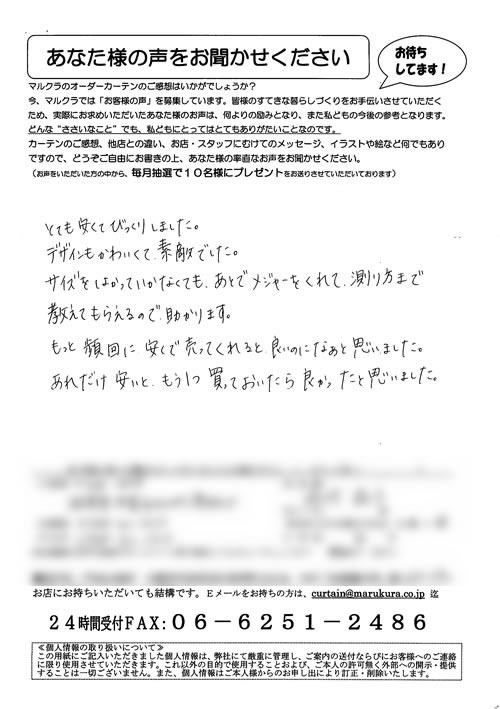 あなた様の声をお聞かせください
お待ち
してます！
マルクラのオーダーカーテンのご感想はいかがでしょうか？
今、マルクラでは「お客様の声」を募集しています。皆様のすてきな暮らしづくりをお手伝いさせていただく
ため、実際にお求めいただいたあなた様のお声は、何よりの励みとなり、また私どもの今後の参考となります。
どんな“ささいなこと”でも、私どもにとってはとてもありがたいことなのです。
カーテンのご感想、他店との違い、お店・スタッフにむけてのメッセージ、イラストや絵など何でもあり
ですので、どうぞご自由にお書きの上、あなた様の率直なお声をお聞かせください。
（お声をいただいた方の中から、毎月抽選で１０名様にプレゼントをお送りさせていただいております）
とても安くてびっくりしました。
デザインもかわいくて、素敵でした。
サイズをはかっていかなくても、あとでメジャーをくれて、測り方まで
教えてもらえるので、助かります。
もっと頻回に安くで売ってくれると、良いのになあと思いました。
あれだけ安いと、もう1つ買っておいたら良かったと思いました。
お店にお持ちいただいても結構です。Ｅメールをお持ちの方は、curtain@marukura.co.jp 迄
２４時間受付ＦＡＸ:０６－６２５１－２４８６
≪個人情報の取り扱いについて≫
この用紙にご記入いただきました個人情報は、弊社にて厳重に管理し、ご案内の送付ならびにお客様へのご連絡
に限り使用させていただきます。これ以外の目的で使用することおよび、ご本人の許可無く外部への開示・提供
することは一切ございません。また、個人情報はご本人様からのお申し出により訂正・削除いたします。